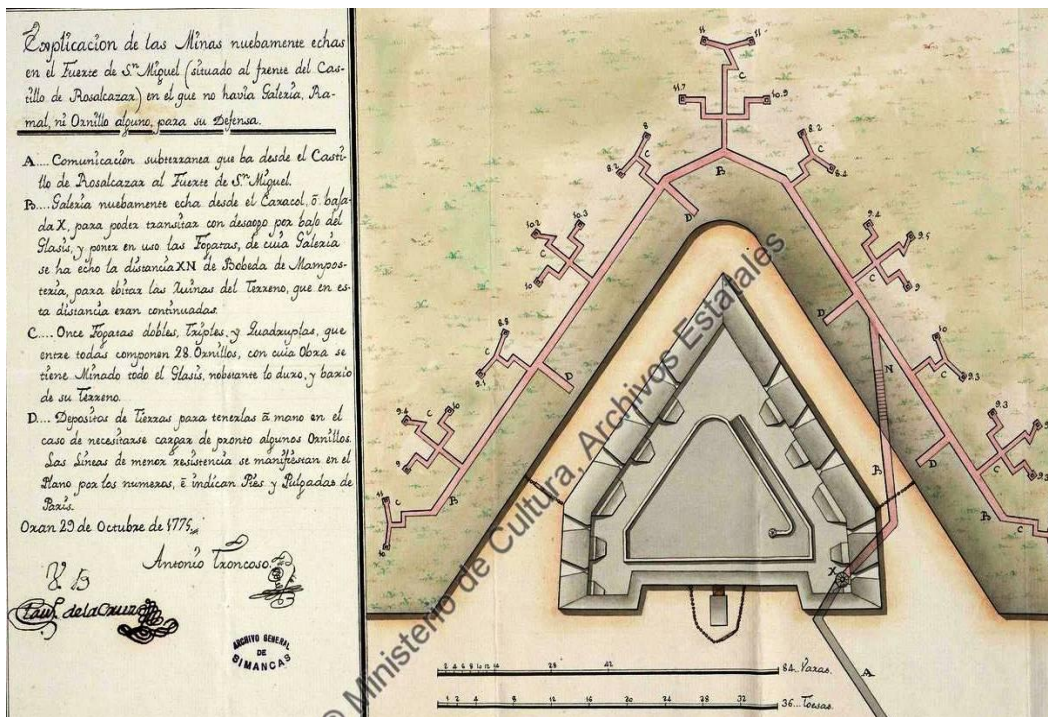 Explicacion de las Minas nuebamente echas
en el Fuerte de S.n Miguel (situado al frente del Cas-
tillo de Rosalcazar) en el que no havia Galeria, Ra-
mal, ni Ornillo alguno, para su Defensa.
A.... Comunicacion subterranea que ba desde el Casti-
llo de Rosalcazar al Fuerte de S.n Miguel.
B.... Galeria nuebamente echa desde el Caracol, ō baja-
da X, para poder transitar con desaogo por bajo del
Glasis, y poner en uso las Fogatas, de cuia Galeria
se ha echo la distancia XN de Bobeda de Mampos-
teria, para ebitar las Ruinas del Terreno, que en es-
ta distancia eran continuadas.
C.... Once Fogatas dobles, Triples, y Quadruplas, que
entre todas componen 28 Ornillos, con cuia Obra se
tiene Minado todo el Glasis, nobstante lo duro, y bario
de su Terreno.
D.... Depositos de Tierras para tenerlas ā mano en el
caso de necesitarse cargar de pronto algunos Ornillos.
Las Lineas de menor resistencia se manifiestan en el
Plano por los numeros, ē indican Pies y Pulgadas de
Paris.
Oran 29 de Octubre de 1775
Antonio Troncoso
de la Cruz
ARCHIVO GENERAL
DE
SIMANCAS
11 11
C
11.7 10.9
8 8.2
C C
8.2 8.4
B
D
10.2 10.3 9.4 9.5
C C
10 9
D
8.8 10
C C
9.1 D N 9.3
9.4 10 9.3 9.3
C D C
9 B
11 B B
C C
10
X
A
2 4 6 8 10 12 14 28 42 84.. Varas.
1 2 4 8 12 16 20 24 28 32 36... Toesas
© Ministerio de Cultura, Archivos Estatales